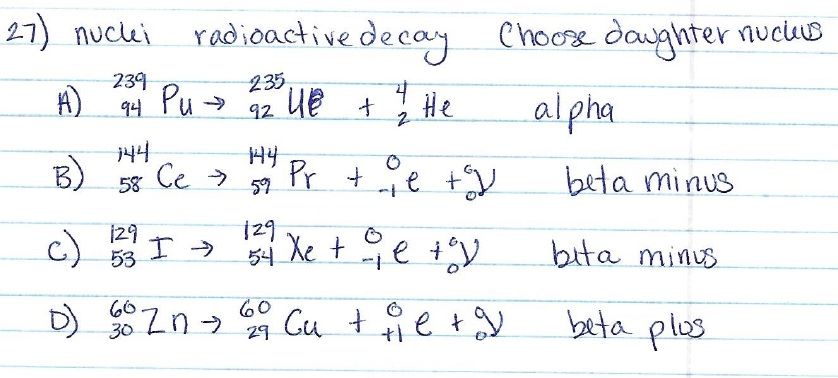 27) nuclei radioactive decay Choose daughter nucleus
A) ²³⁹₉₄ Pu → ²³⁵₉₂ U + ⁴₂ He alpha
B) ¹⁴⁴₅₈ Ce → ¹⁴⁴₅₉ Pr + ⁰₋₁ e + ⁰₀ν beta minus
C) ¹²⁹₅₃ I → ¹²⁹₅₄ Xe + ⁰₋₁ e + ⁰₀ν beta minus
D) ⁶⁰₃₀ Zn → ⁶⁰₂₉ Cu + ⁰₊₁ e + ⁰₀ν beta plus